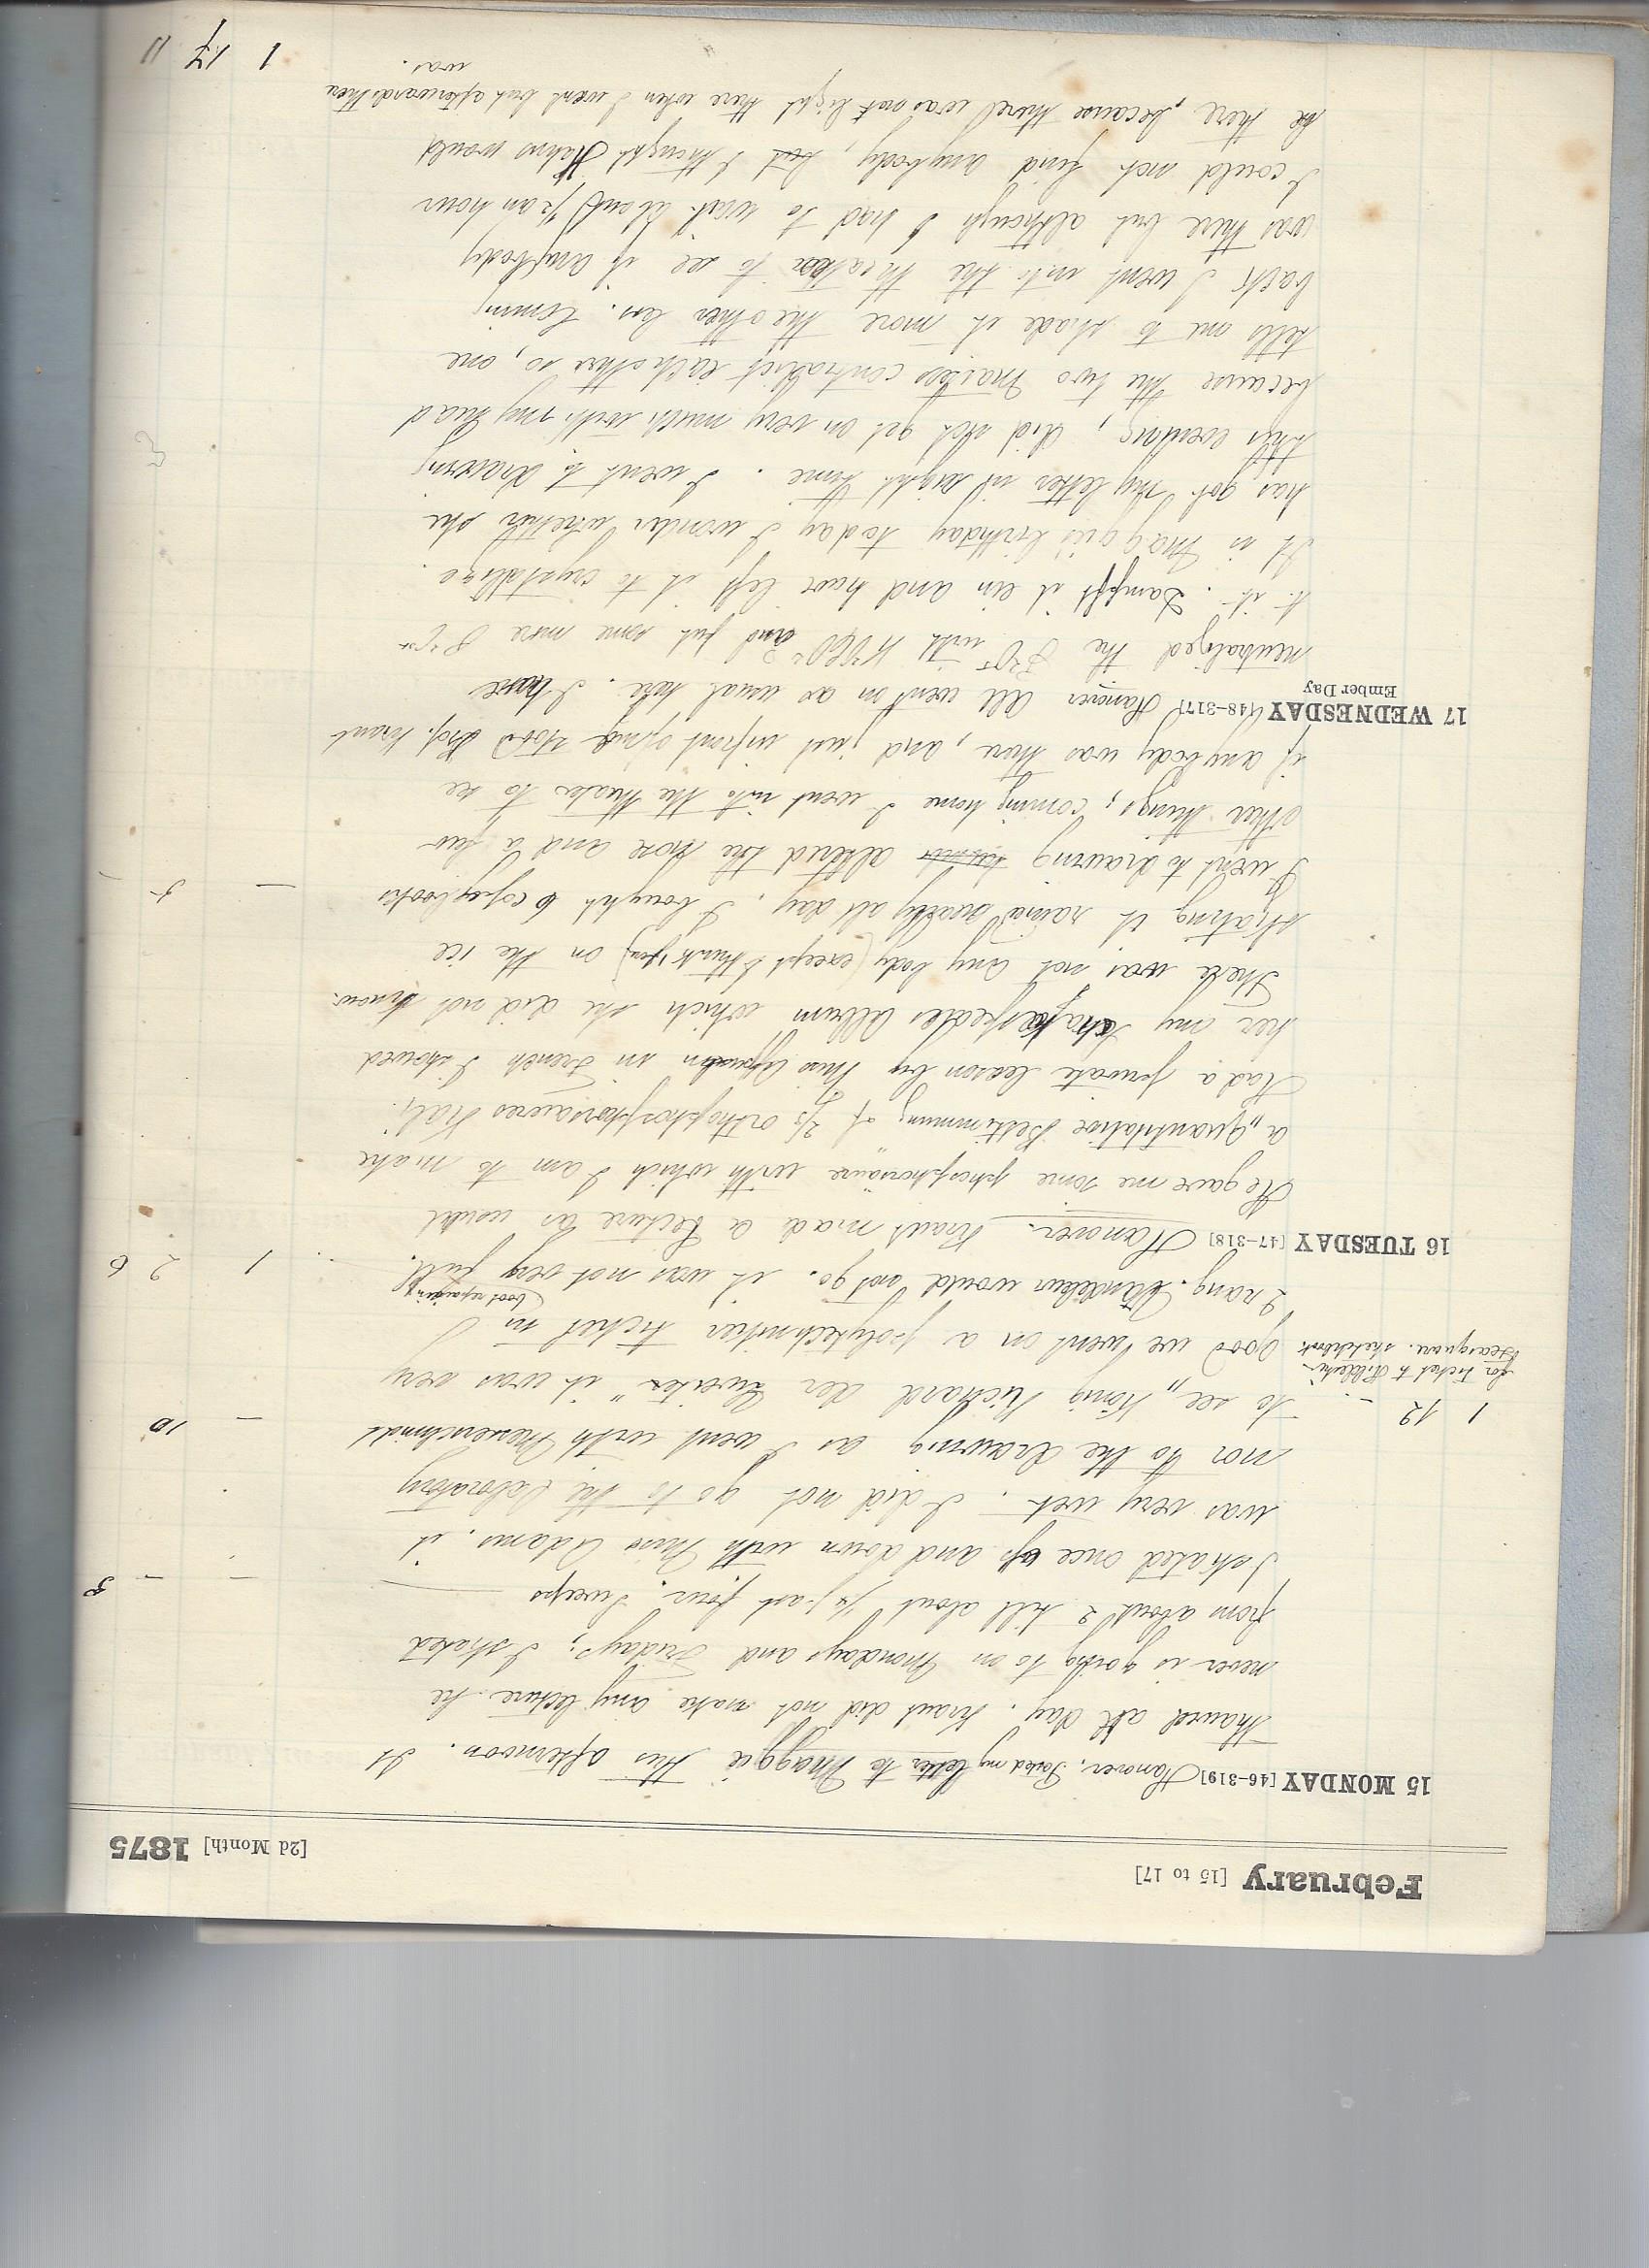 February [15 to 17] [2d Month] 1875
15 MONDAY [46-319] Hanover. Posted my letter to Maggie this afternoon. It
thawed all day. Kraut did not make any lecture he
never is going to on Mondays and Fridays; I skated
from about 2 till about 1/4 past four. Sweeps — — 3
I skated once up and down with Miss Adams. it
was very wet. I did not go to the laboratory
nor to the drawing as I went with Meuerschmidt — 10
to see „König Richard der Zweite" it was very
1 12 —
for ticket to
sketchbook
good we went on a polytechniker ticket in I
(boot repairing)
2 rang. would not go. it was not very full. 1 2 6
16 TUESDAY [47-318] Hanover. Kraut mad a lecture as usual
He gave me some phosphorsäure with which I am to make
a „quantitative Bestimmung of 2/3 orthophosphorsaures Kali.
Had a private lesson by Miss in French I showed
her my album which she did not know.
There was not any body (except I think you) on the ice
skating it rained nearly all day. I bought 6 copybooks — 5
I went to drawing altered the nose and a few
other things; comming home I went into the theater to see
if anybody was there, and just infront of me stood Prof. Kraut
17 WEDNESDAY [48-317] Hanover All went on as usual here. I have
Ember Day
neutralized the with and put some more
to it. Dampft it ein and have left it to crystallize.
It is Maggies birthday today I wonder whether she
has got my letter in right time. I went to drawing
this evening, did not get on very much with my head
because the two contradict each other so, one
tells me to shade it more, the other less. Coming
back I went into the theater to see if anybody
was there but although I had to wait about 1/2 an hour
I could not find anybody, but I thought Hahns would
be there, because there was not light there when I went but afterwards there
was. 1 17 11